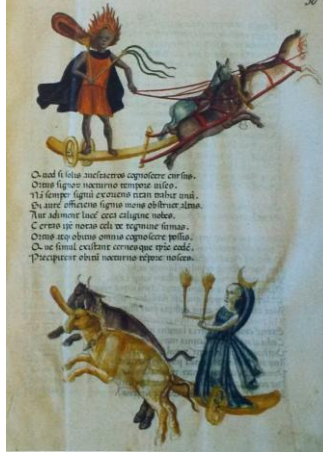 Quod si solis aues tactros cognoscere cursus.
Ortus signor nocturno tempore uises.
Nā semper signū exoriens titan trahit unū.
officiens signis mons obstruet altus.
Aut adiment lucē ceca caligine nubes.
Certas ipe notas celi de tegmine sumas.
Ortus atq obitus omnis cognoscere possis.
Que simul existant cernes que tpie cedē.
Precipitent obitū nocturno tēpore nosces.